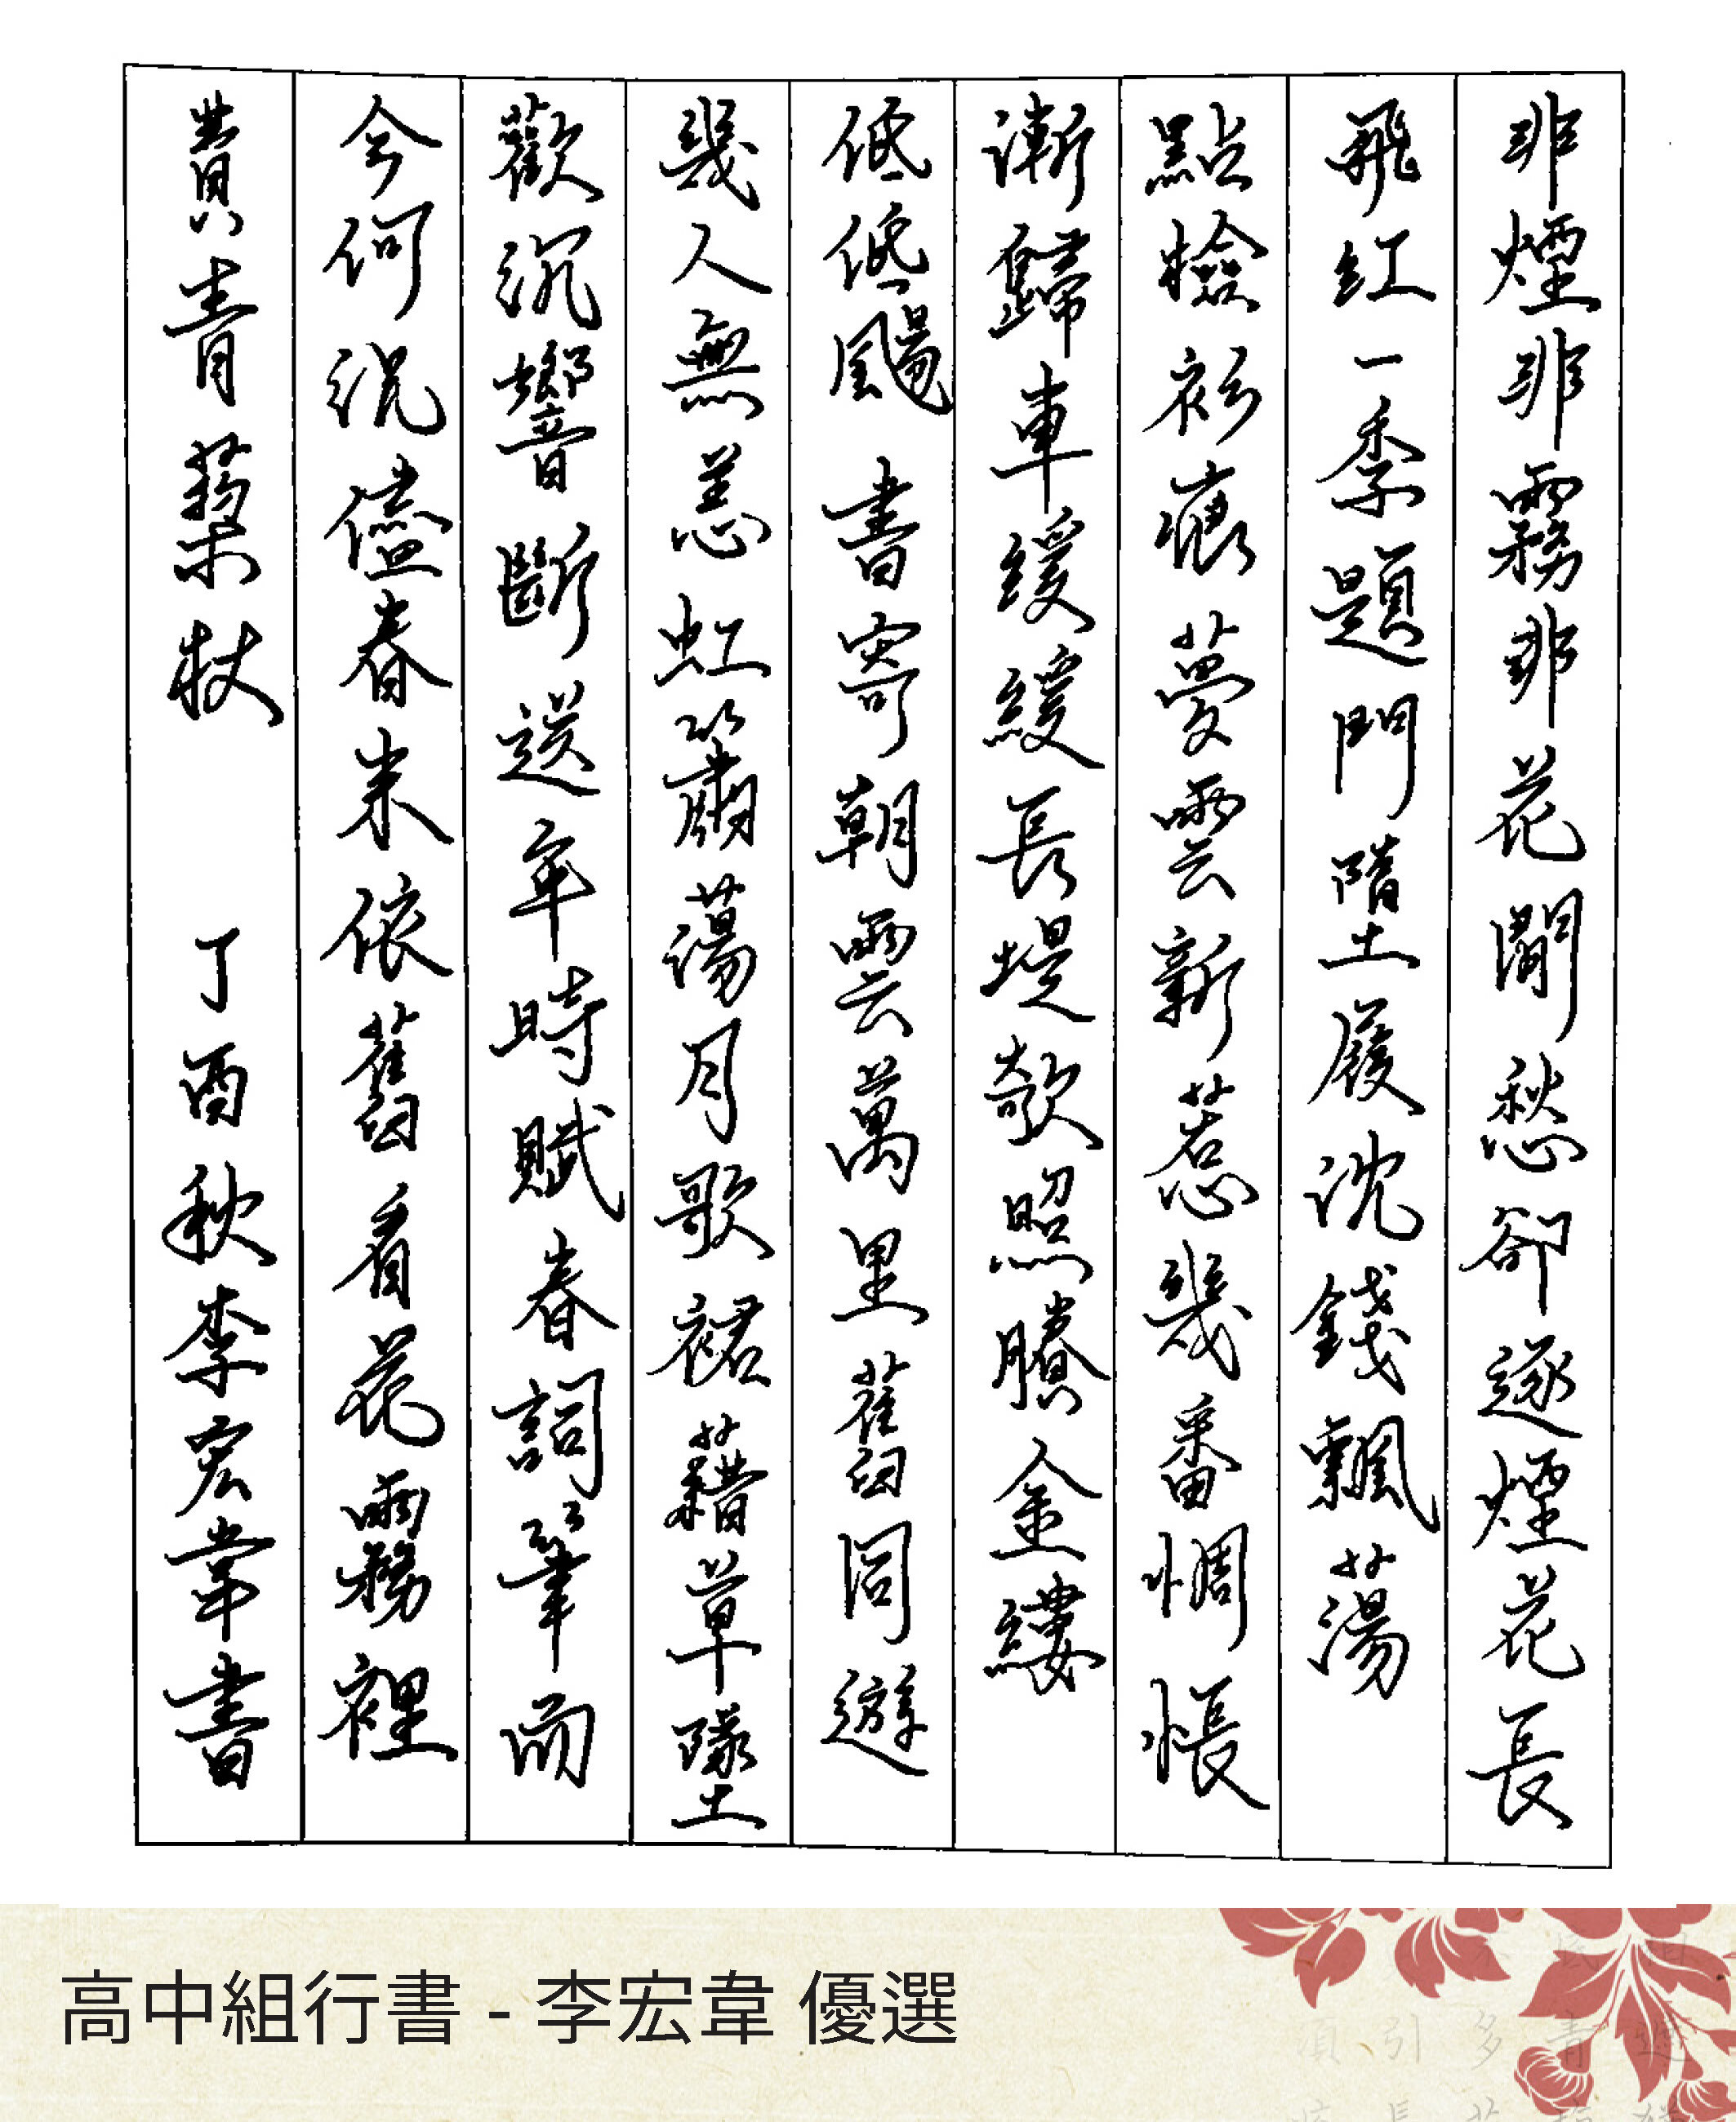 非煙非霧非花閒愁卻逐煙花長
飛紅一季題門墮屐沈錢飄蕩
點檢衫痕夢雲新惹幾番惆悵
漸歸車緩緩長堤欹照賸金縷
低低颺 書寄朝雲萬里舊同遊
幾人無恙虹簫蕩月歌裙藉草墜
歡沉響斷送年時賦春詞筆而
今何況儘春來依舊看花霧裡
費青藜杖 丁酉秋李宏韋書
高中組行書 - 李宏韋 優選